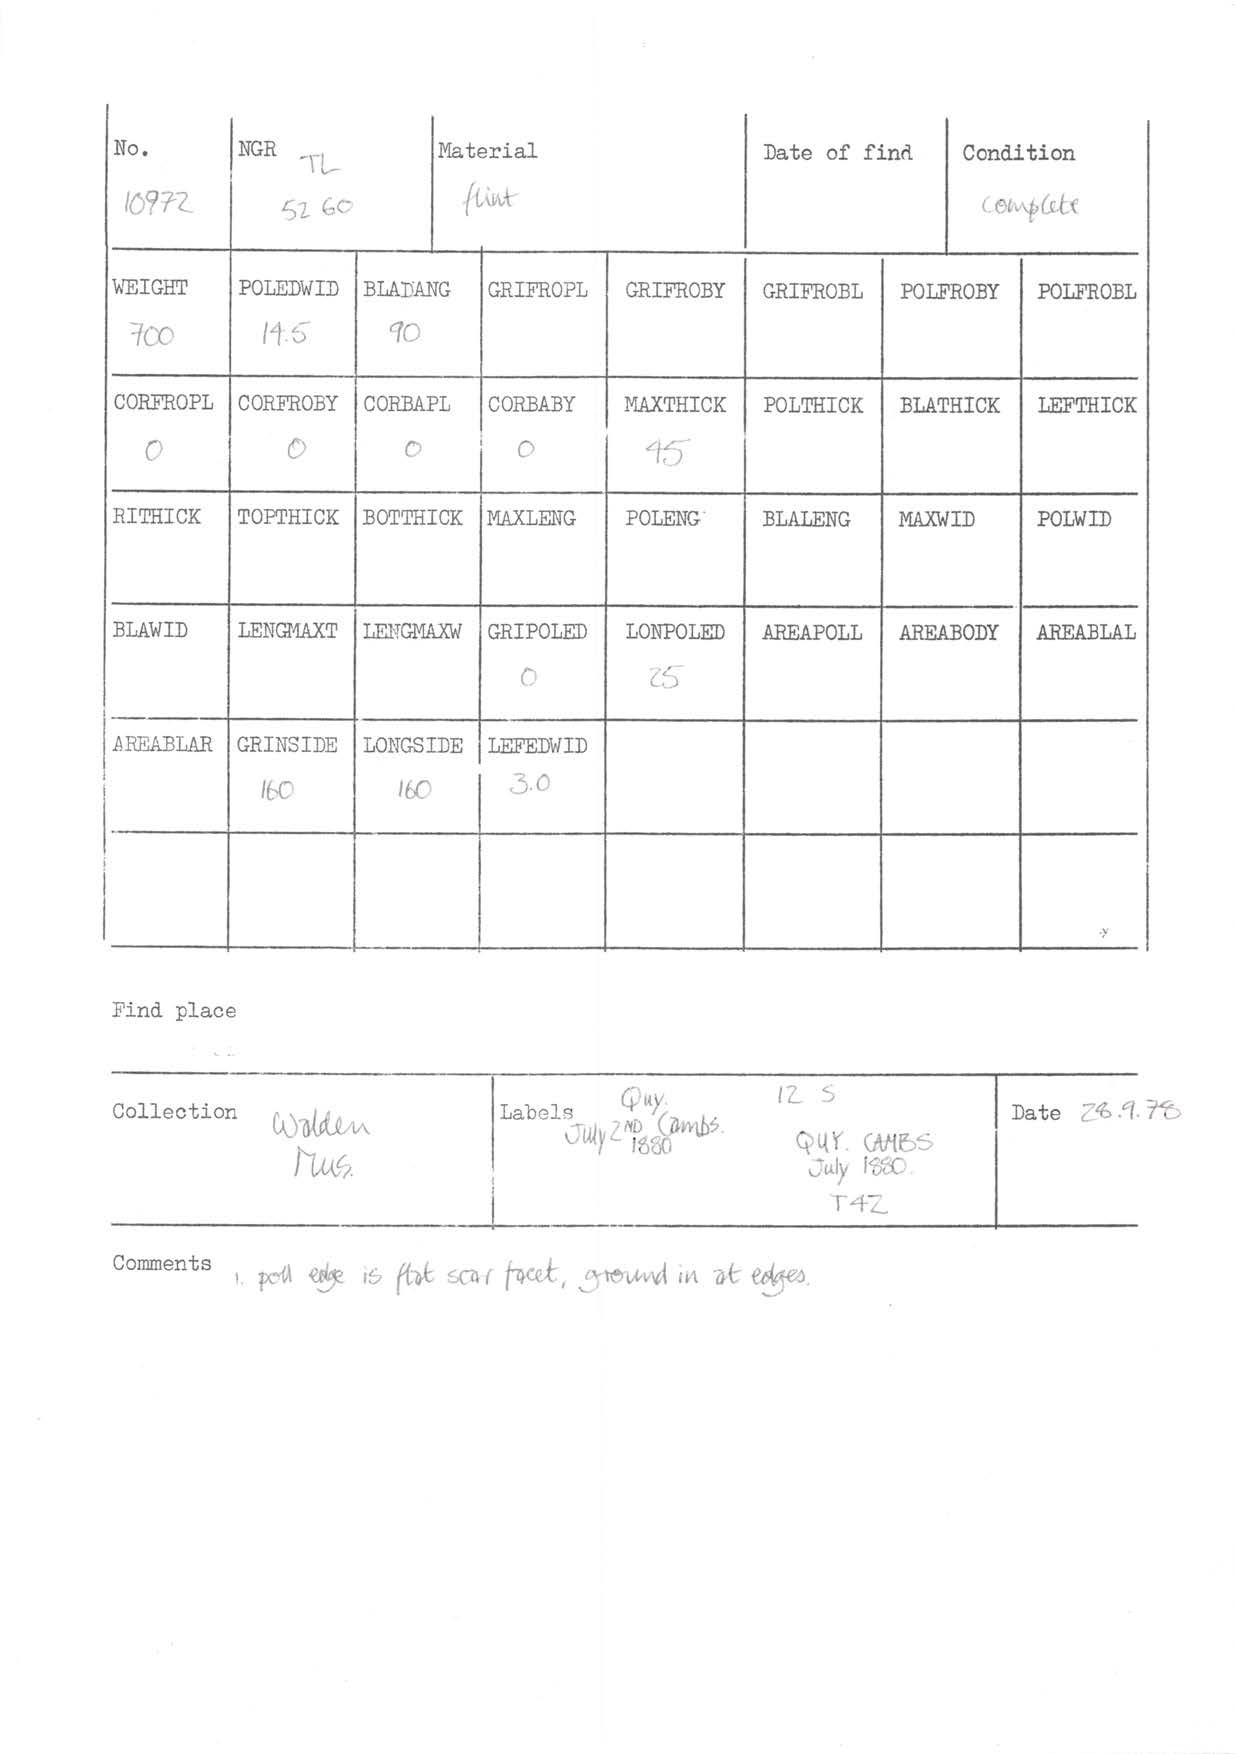 No. NGR Material Date of find Condition
TL
10972 52 60 flint complete
WEIGHT POLEDWID BLADANG GRIFROPL GRIFROBY GRIFROBL POLFROBY POLFROBL
700 14.5 90
CORFROPL CORFROBY CORBAPL CORBABY MAXTHICK POLTHICK BLATHICK LEFTHICK
0 0 0 0 45
RITHICK TOPTHICK BOTTHICK MAXLENG POLENG BLALENG MAXWID POLWID
BLAWID LENGMAXT LENGMAXW GRIPOLED LONPOLED AREAPOLL AREABODY AREABLAL
0 25
AREABLAR GRINSIDE LONGSIDE LEFEDWID
160 160 3.0
Find place
Collection Walden
Mus.
Labels Quy.
July 2ND Cambs.
1880
12 S
QUY. CAMBS
July 1880.
T42
Date 28.9.78
Comments 1. poll edge is flat scar facet, ground in at edges.